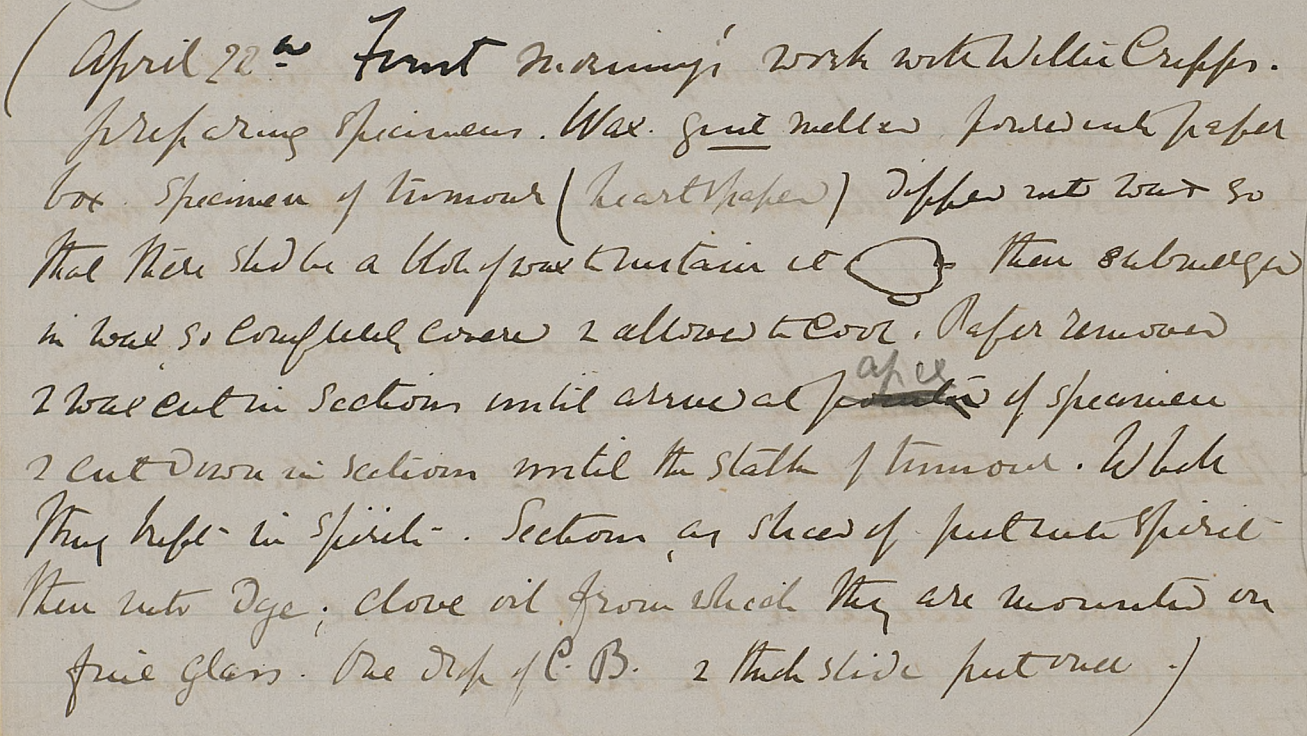 (April 22nd First morning's work with Willie Cripps.
preparing specimens. Wax. just melted poured into paper
box. Specimen of tumour (heart shaped) dipped into wax so
that there shd be a blob of wax to sustain it then submerged
in wax, so completely covered & allowed to cool. Paper removed
& wax cut in sections until arrived at apex of specimen
& cut down in sections until the stalk of tumour. Whole
thing kept in spirit. Sections as sliced off put into spirit
then into dye; clove oil from which they are mounted on
fine glass. One drop of C. B. & thick slide put over.)